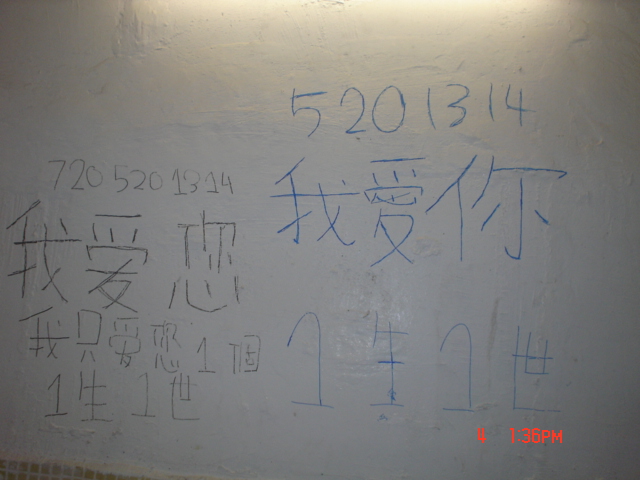 720 520 1314
我爱您
我只爱您1個
1生1世
5201314
我愛你
1生1世
4 1:36PM